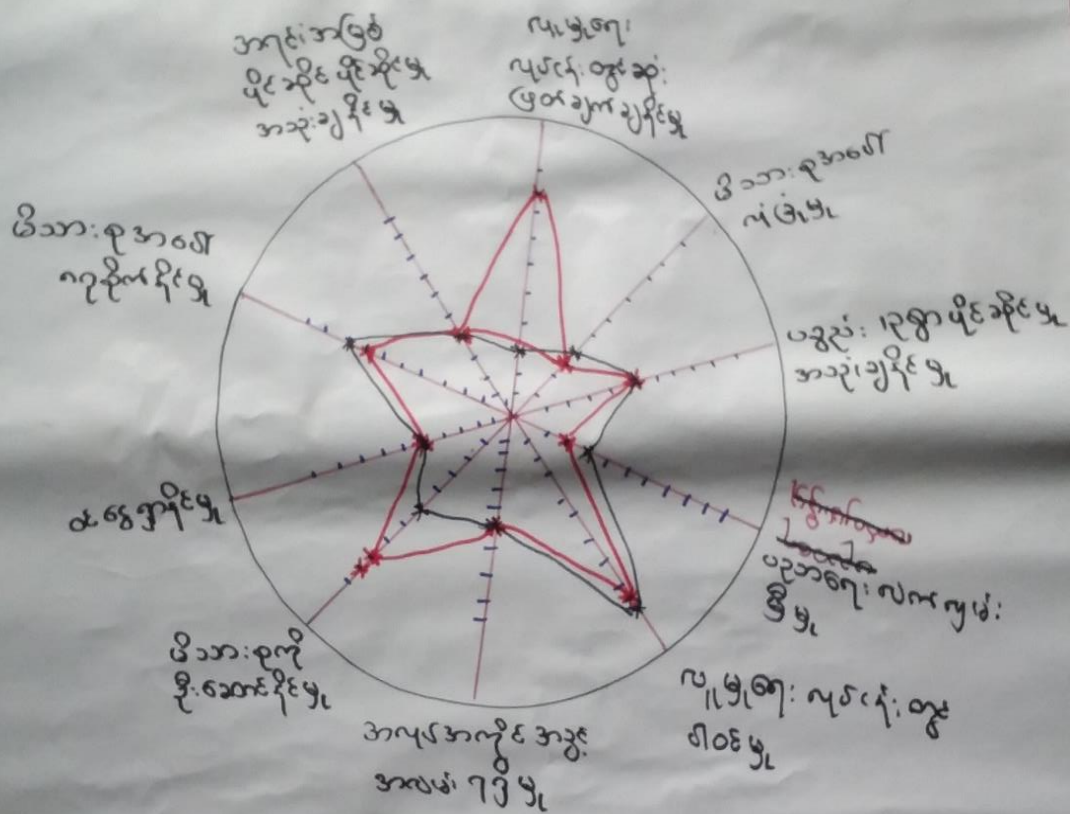 လူမှုရေး
လုပ်ငန်းတွင်ဆုံး
ဖြတ်ချက်ချနိုင်မှု
မိသားစုအပေါ်
လုံခြုံမှု
ပစ္စည်းဥစ္စာပိုင်ဆိုင်မှု
အသုံးချနိုင်မှု
ပညာရေး လက်လှမ်း
မှီမှု
လူမှုရေး လုပ်ငန်းတွင်
ပါဝင်မှု
အလုပ်အကိုင် အခွင့်
အလမ်း ရရှိမှု
မိသားစုကို
ဦးဆောင်နိုင်မှု
ငွေရှာနိုင်မှု
မိသားစုအပေါ်
ဂရုစိုက်နိုင်မှု
အရင်းအမြစ်
ပိုင်ဆိုင်ပိုင်ဆိုင်မှု
အသုံးချနိုင်မှု